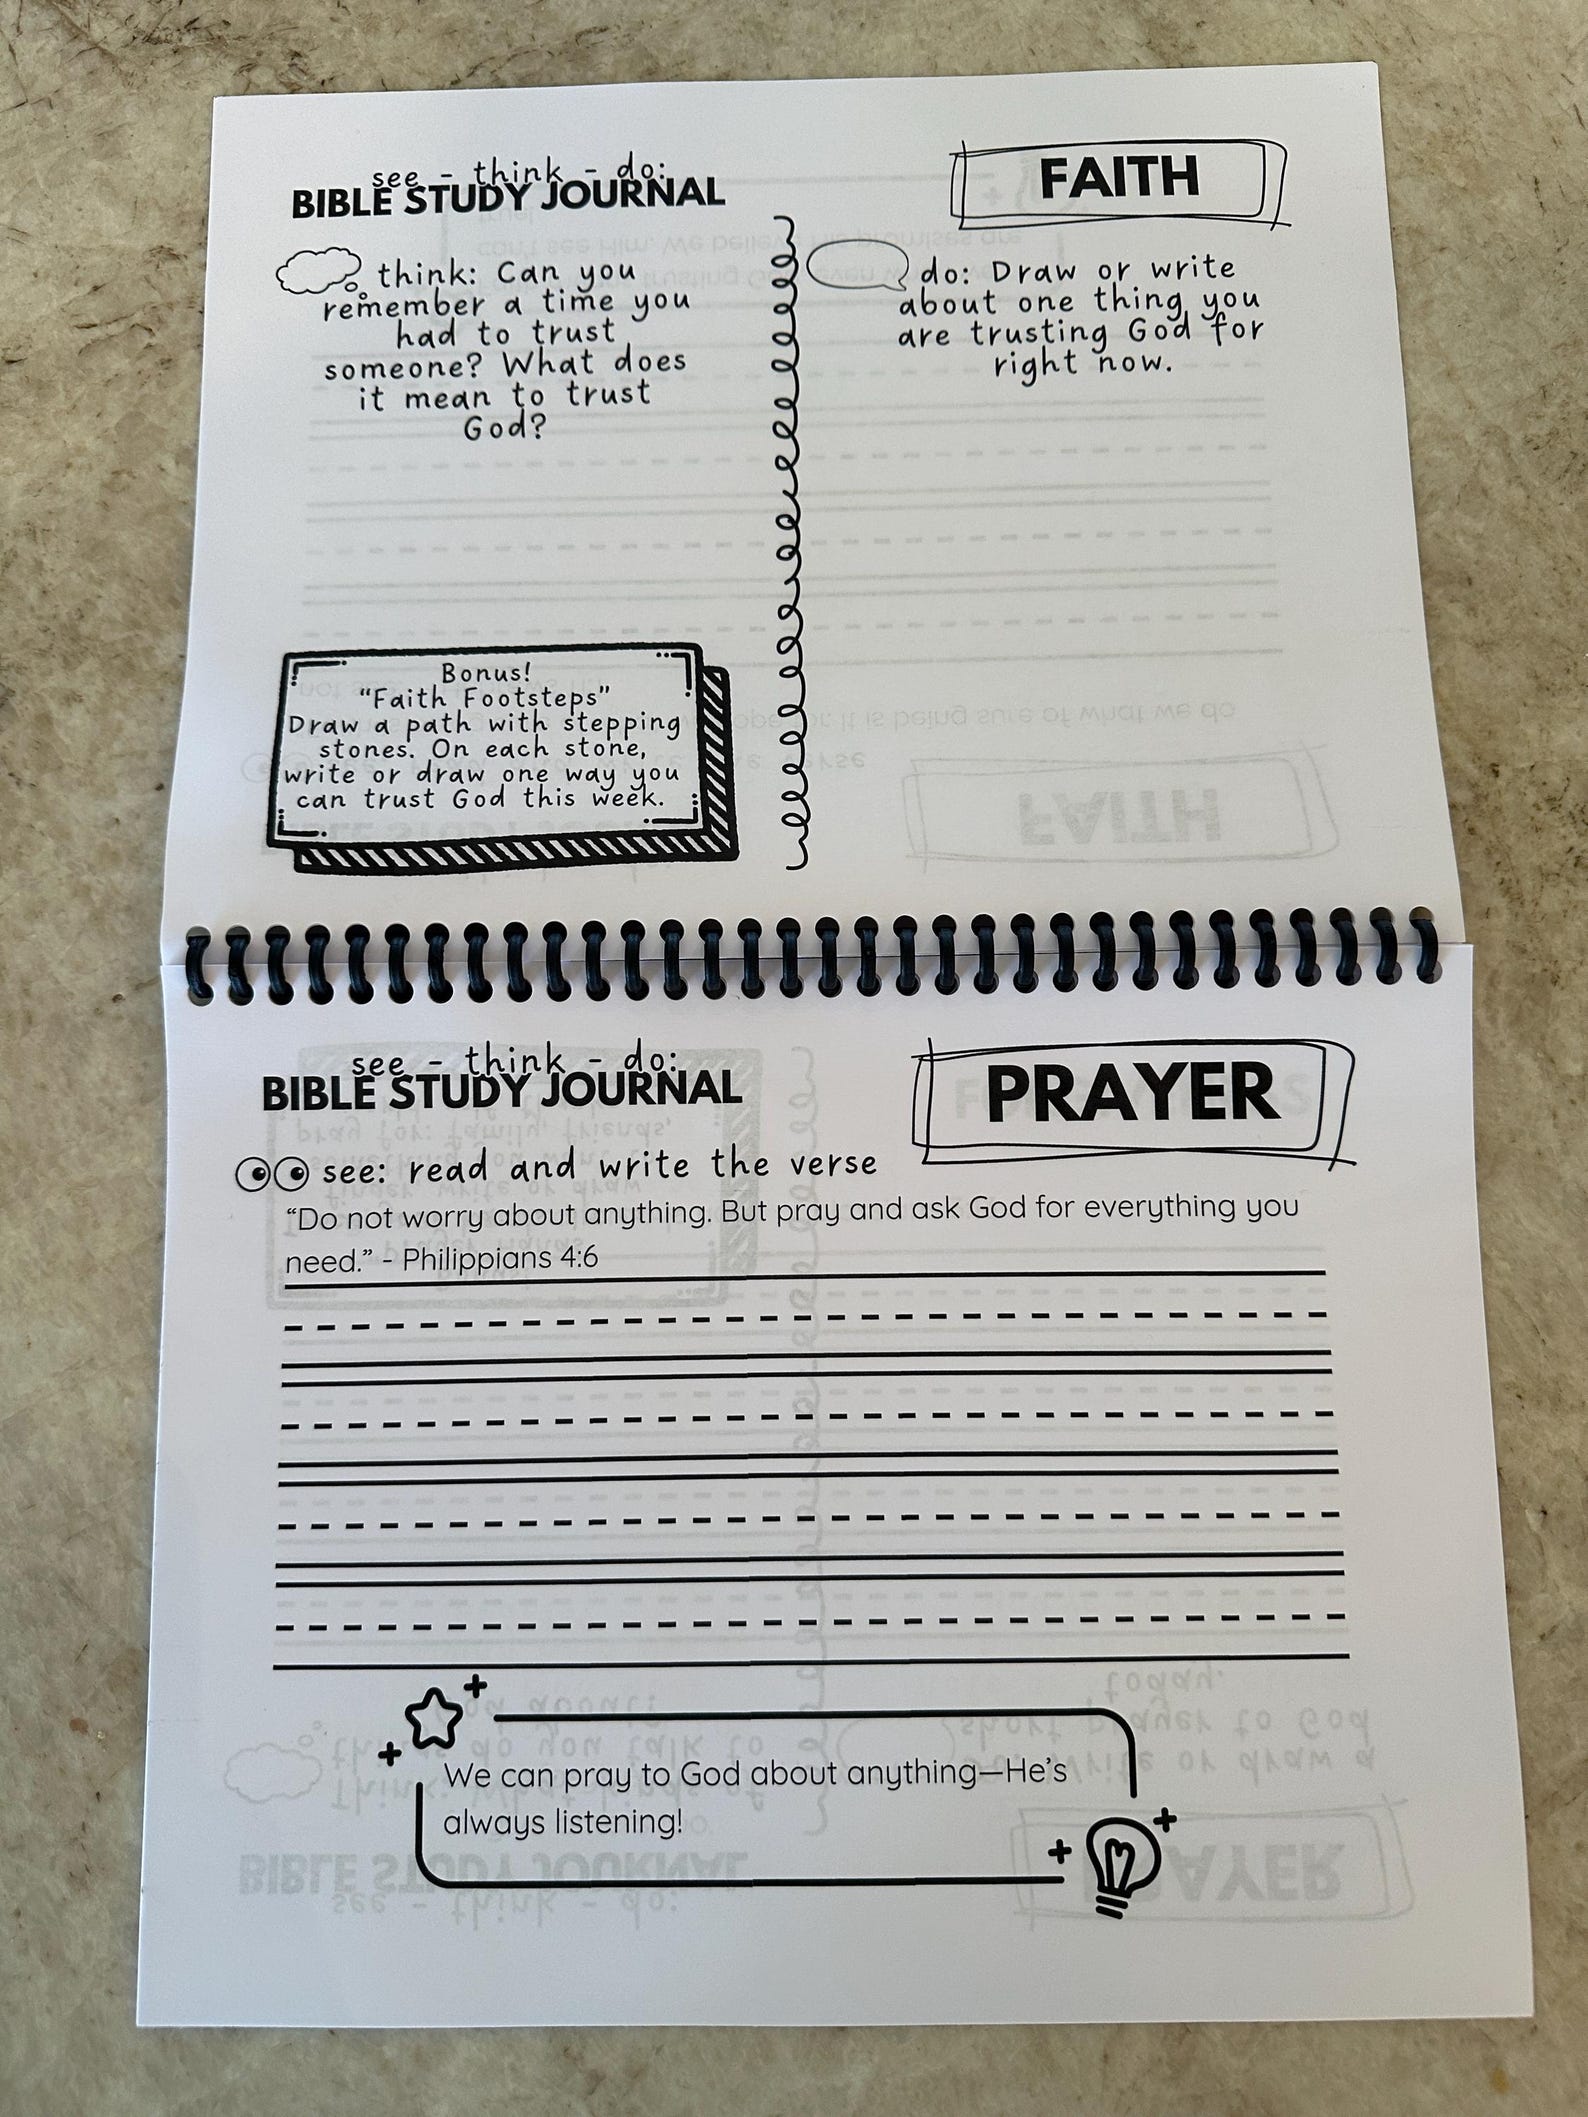 see - think - do:
BIBLE STUDY JOURNAL
FAITH
think: Can you
remember a time you
had to trust
someone? What does
it mean to trust
God?
do: Draw or write
about one thing you
are trusting God for
right now.
Bonus!
“Faith Footsteps”
Draw a path with stepping
stones. On each stone,
write or draw one way you
can trust God this week.
see - think - do:
BIBLE STUDY JOURNAL
PRAYER
see: read and write the verse
“Do not worry about anything. But pray and ask God for everything you
need.” - Philippians 4:6
We can pray to God about anything—He’s
always listening!